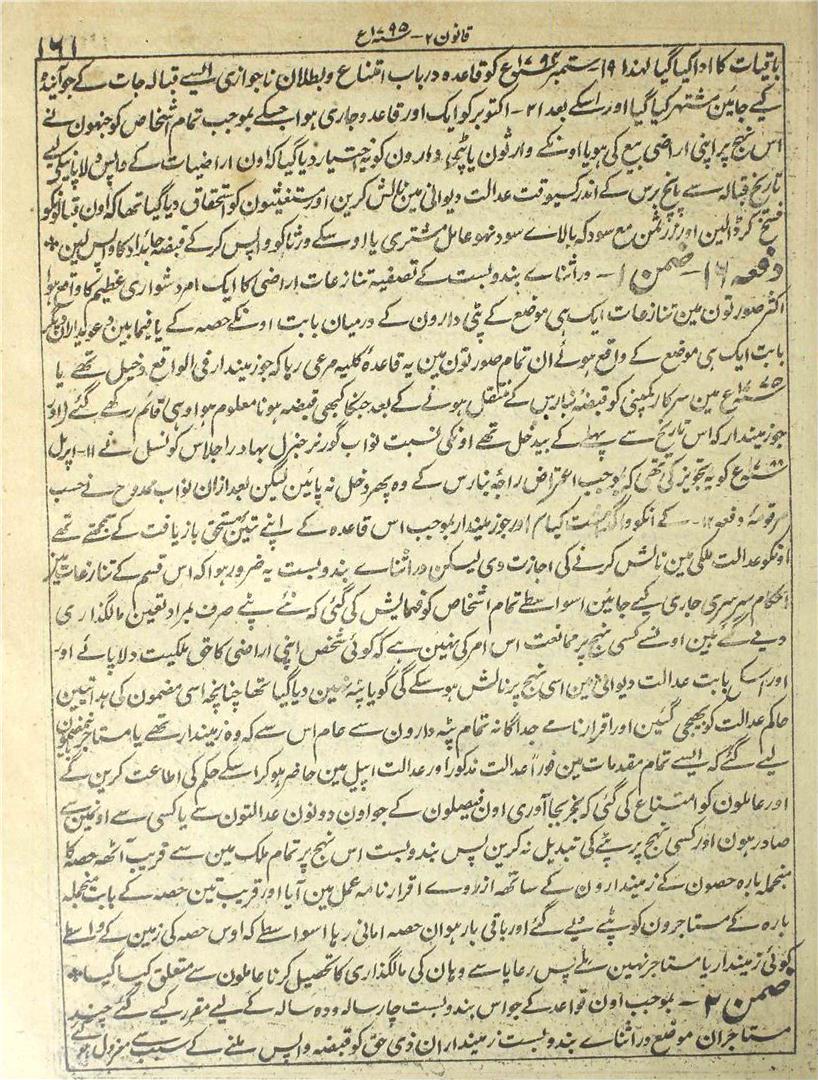 قانون ۲ - ۱۷۹۵ سنہ ع
۱۶۱
باقیات کا ادا کیا گیا لہذا ۱۹- ستمبر ۱۷۹۴ سنہ ع کو قاعدہ درباب امتناع و بطلان ناجوازی ایسے قبالہ جات کے جو آیندہ
کیے جائین مشتہر کیا گیا اور اسکے بعد ۲۱- اکتوبر کو ایک اور قاعدہ جاری ہوا جسکے بموجب تمام اشخاص کو جنہون نے
اس نہج پر اپنی اراضی بیع کی ہو یا اونکے وارثون یا پٹی دارون کو یہ اختیار دیا گیا کہ اون اراضیات کے واپس دلاپانیکے لیے
تاریخ قبالہ سے پانچ برس کے اندر کسیوقت عدالت دیوانی مین نالش کرین اور مستغیثون کو استحقاق دیا گیا تھا کہ اون قبالونکو
فسخ کر ڈالین اور زر ثمن مع سود کہ بالاے سود نہو عامل مشتری یا اوسکے ورثا کو واپس کر کے قبضہ جائداد کا واپس لین *
دفعہ ۱۶- ضمن ۱- در اثناے بندوبست کے تصفیہ تنازعات اراضی کا ایک امر دشواری عظیم کا واقع ہوا
اکثر صورتون مین تنازعات ایک ہی موضع کے پٹی دارون کے درمیان بابت اونکے حصہ کے یا فیمابین دعویدارالان دیگر
بابت ایک ہی موضع کے واقع ہوئے ان تمام صورتون مین یہ قاعدہ کلیہ مرعی رہا کہ جو زمیندار فی الواقع دخیل تھے یا
۱۷۷۵ سنہ ع مین سرکار کمپنی کو قبضہ بنارس کے منتقل ہونے کے بعد جنکا کبھی قبضہ ہونا معلوم ہوا وہی قائم رکھے گئے اور
جو زمیندار کہ اس تاریخ سے پہلے کے بیدخل تھے اونکی نسبت نواب گورنر جنرل بہادر اجلاس کونسل نے ۱۱- اپریل
۱۷۸۸ سنہ ع کو یہ تجویز کی تھی کہ بوجب اعتراض راجۂ بنارس کے وہ پھر دخل نہ پائین لیکن بعد ازان نواب ممدوح نے حسب
مرقومۂ دفعہ ۱۲- کے انکو کیا اور جو زمیندار بموجب اس قاعدہ کے اپنے تئین مستحق بازیافت کے سمجھتے تھے
اونکو عدالت ملکی مین نالش کرنے کی اجازت دی لیکن در اثناے بندوبست یہ ضرور ہوا کہ اس قسم کے تنازعات مین
احکام سرسری جاری کیے جائین اسواسطے تمام اشخاص کو فہمایش کی گئی کہ نئے پٹے صرف بمراد تعین کی مالگذاری
دیے گئے ہین اونسے کسی نہج پر ممانعت اس امر کی نہین ہے کہ کوئی شخص اپنی اراضی کا حق ملکیت دلاپائے اور
اور اسکی بابت عدالت دیوانی مین اسی نہج پر نالش ہو سکے گی گویا پٹہ نہین دیا گیا تھا چنانچہ اسی مضمون کی ہدایتین
حاکم عدالت کو بھیجی گئین اور اقرارنامے جداگانہ تمام پٹہ دارون سے عام اس سے کہ وہ زمیندار تھے یا مستاجر
لیے گئے کہ ایسے تمام مقدمات مین فوراً عدالت مذکور اور عدالت اپیل مین حاضر ہو کر اسکے حکم کی اطاعت کرین گے
اور عاملون کو امتناع کی گئی کہ بجز بجاآوری اون فیصلون کے جو اون دونون عدالتون سے یا کسی سے اونمین سے
صادر ہون اور کسی نہج پر پٹے کی تبدیل نہ کرین پس بندوبست اس نہج پر تمام ملک مین سے قریب آٹھہ حصہ کا
منجملہ بارہ حصون کے زمیندارون کے ساتھہ ازروے اقرارنامہ عمل مین آیا اور قریب تین حصہ کے بابت منجملہ
بارہ کے مستاجرون کو پٹے دیے گئے اور باقی بارہوان حصہ امانی رہا اسواسطے کہ اوس حصہ کی زمین کے واسطے
کوئی زمیندار یا مستاجر نہین ملے پس رعایا سے وہان کی مالگذاری کا تحصیل کرنا عاملون سے متعلق کیا گیا *
ضمن ۲- بموجب اون قواعد کے جو اس بندوبست چار سالہ و دہ سالہ کے لیے مقرر کیے گئے چند
مستاجران موضع در اثناے بندوبست زمینداران ذی حق کو قبضہ واپس ملنے کے سبب سے معزول ہو گئے